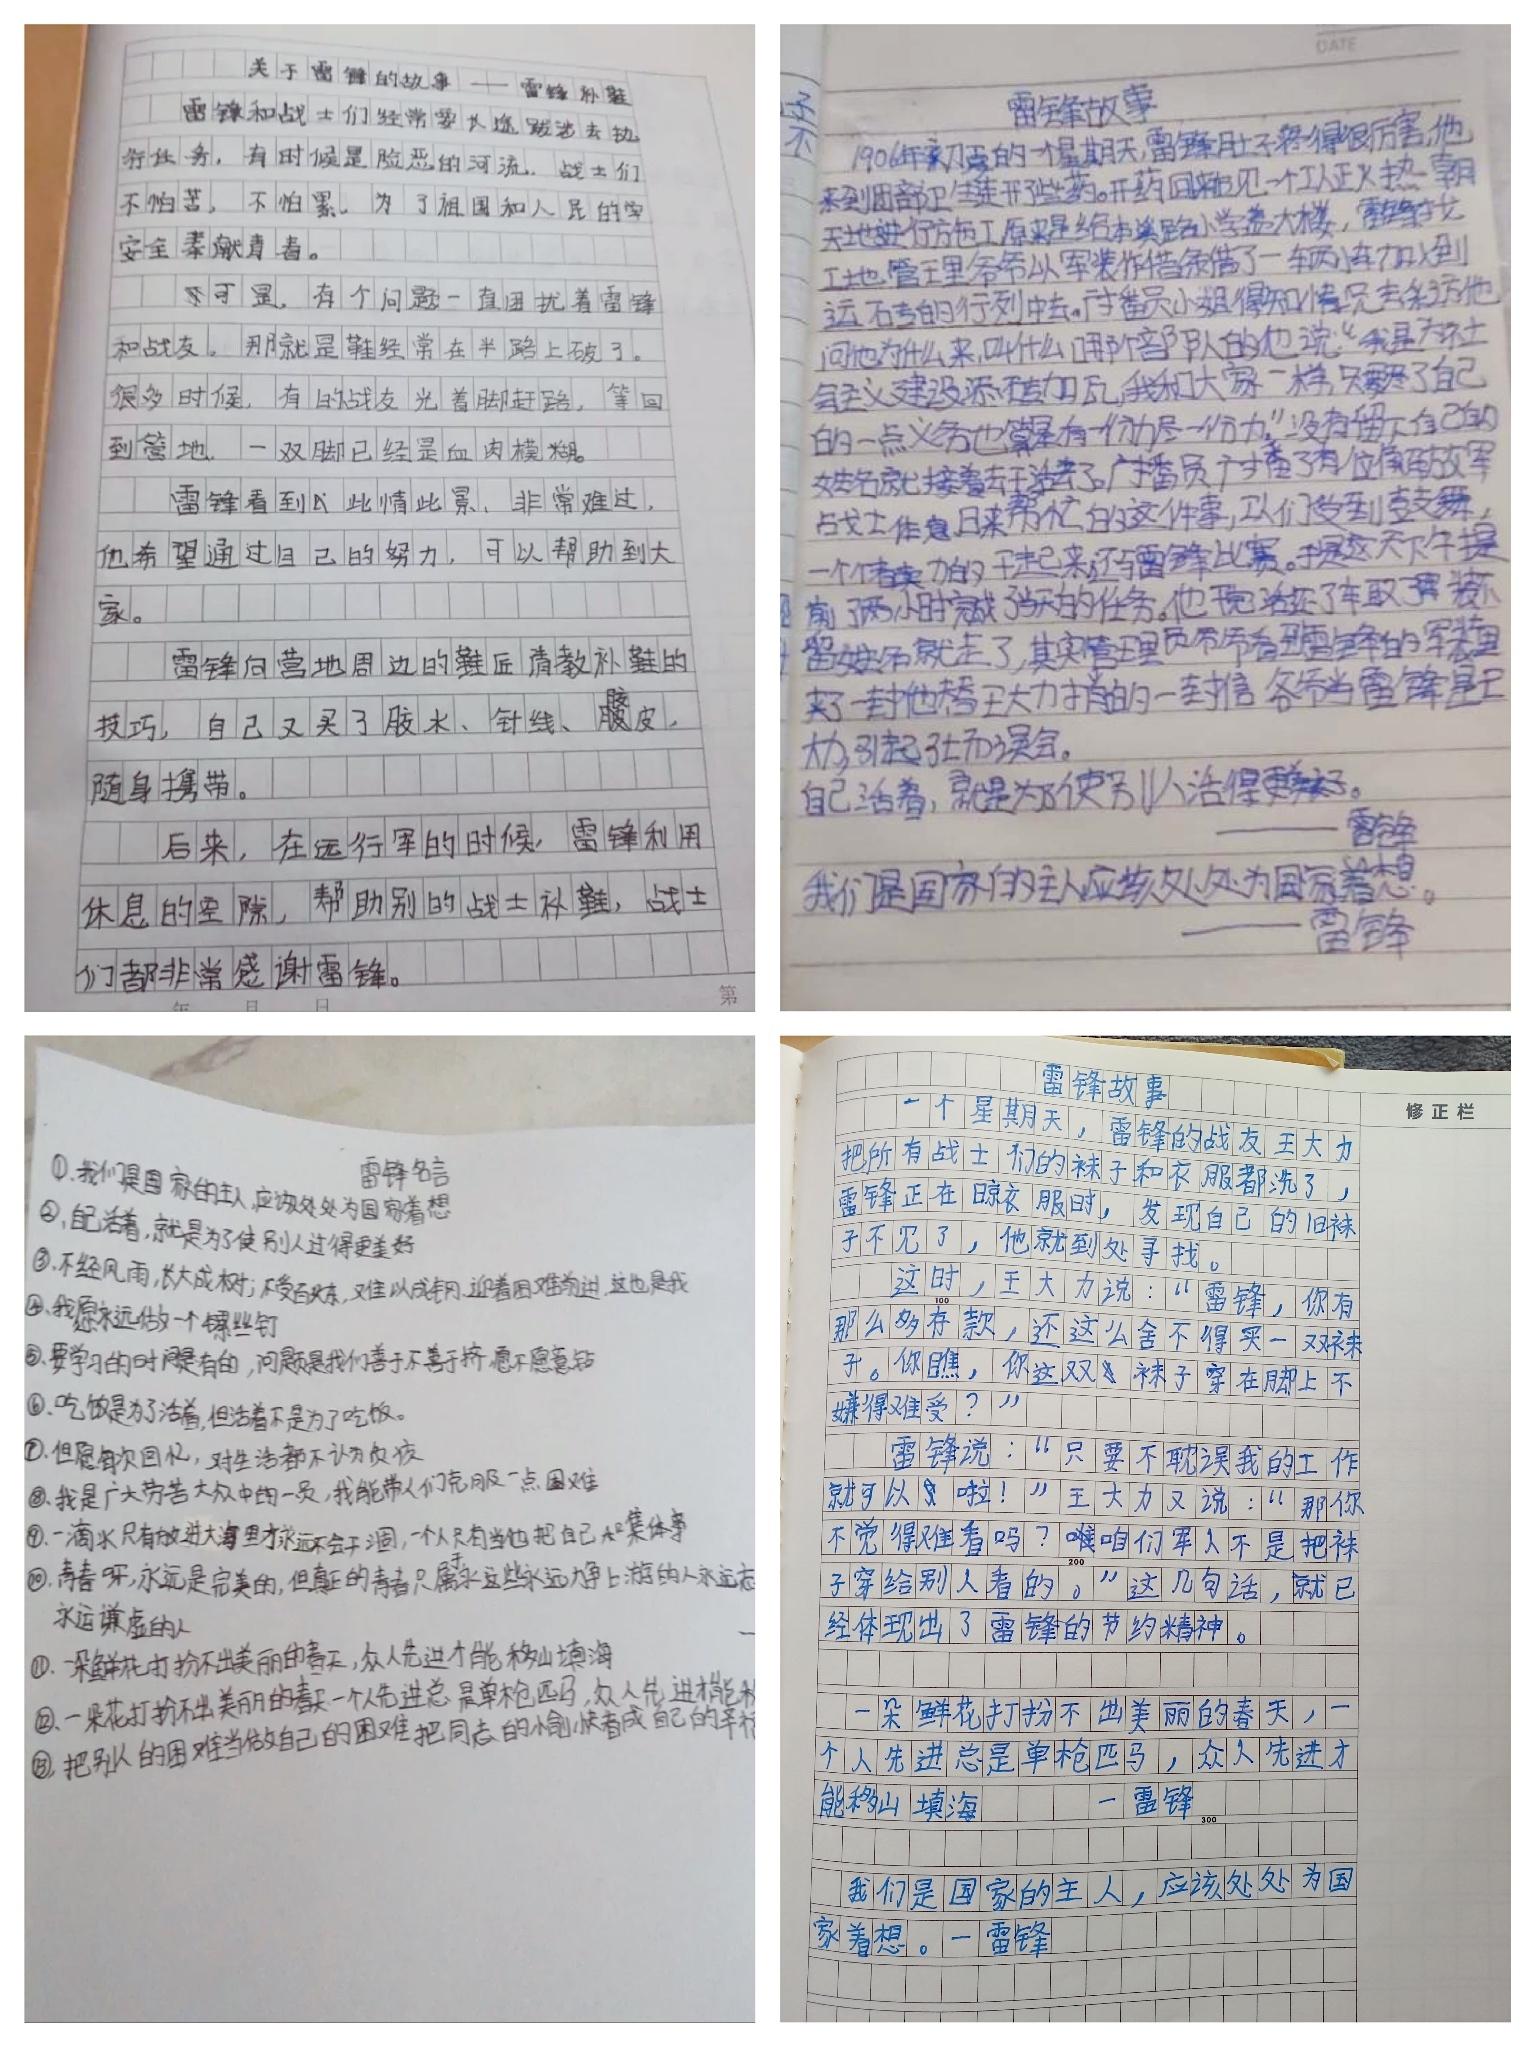 关于雷锋的故事——雷锋补鞋
雷锋和战士们经常要长途跋涉去执
行任务，有时候是险恶的河流，战士们
不怕苦，不怕累，为了祖国和人民的
安全奉献青春。
可是，有个问题一直困扰着雷锋
和战友。那就是鞋经常在半路上破了。
很多时候，有的战友光着脚赶路，等回
到营地，一双脚已经是血肉模糊。
雷锋看到此情此景，非常难过，
他希望通过自己的努力，可以帮助到大
家。
雷锋向营地周边的鞋匠请教补鞋的
技巧，自己又买了胶水、针线、胶皮，
随身携带。
后来，在远行军的时候，雷锋利用
休息的空隙，帮助别的战士补鞋，战士
们都非常感谢雷锋。
年 月 日
第
DATE
雷锋故事
1906年的一个星期天，雷锋肚子疼得很厉害，他
来到团部卫生连开了些药。开药回来见一个工正火热朝
天地进行施工原来是给本溪路小学盖大楼，雷锋
工地管理爷爷以军装作借条借了一车加入到
运石专的行列中去。广番员小姐得知情况去采访他
问他为什么来，叫什么哪个部队的他说“我是为社
会主义建设添砖加瓦，我和大家一样，只要尽了自己
的一点义务也算是有一份力尽一份力。”没有留下自己的
姓名就接着去干活去了。广播员广播了有位解放军
战士休息日来帮忙的这件事，工人们受到鼓舞，
一个个卖力的干起来还与雷锋比赛。于是这天下午提
前了两小时完成了当天的任务。他干完活还了车取了军装不
留姓名就走了，其实管理员爷爷看到雷锋的军装里
夹了一封他替王大力捎的一封信 爷爷当雷锋是王
大力，引起了误会。
自己活着，就是为了使别人活得更美好。
——雷锋
我们是国家的主人应该处处为国家着想。
——雷锋
雷锋名言
①.我们是国家的主人，应该处处为国家着想
②.自己活着，就是为了使别人过得更美好
③.不经风雨，长大成树；不受百炼，难以成钢.迎着困难前进，这也是我
④.我愿永远做一个螺丝钉
⑤.要学习的时间是有的，问题是我们善于不善于挤，愿不愿意钻
⑥.吃饭是为了活着，但活着不是为了吃饭。
⑦.但愿每次回忆，对生活都不认为负疚
⑧.我是广大劳苦大众中的一员，我能带人们克服一点困难
⑨.一滴水只有放进大海里才永远不会干涸，一个人只有当他把自己和集体事
⑩.青春呀，永远是完美的，但真正的青春只属于这些永远力争上游的人永远忘
永远谦虚的人
⑪.一朵鲜花打扮不出美丽的春天，众人先进才能移山填海
⑫.一朵花打扮不出美丽的春天一个人先进总是单枪匹马，众人先进才能移
⑬.把别人的困难当做自己的困难把同志的愉快看成自己的幸福
修正栏
雷锋故事
一个星期天，雷锋的战友王大力
把所有战士们的袜子和衣服都洗了，
雷锋正在晾衣服时，发现自己的旧袜
子不见了，他就到处寻找。
这时，王大力说：“雷锋，你有
100
那么多存款，还这么舍不得买一双袜
子。你瞧，你这双袜子穿在脚上不
嫌得难受？”
雷锋说：“只要不耽误我的工作
就可以啦！”王大力又说：“那你
不觉得难看吗？咱们军人不是把袜
200
子穿给别人看的。”这几句话，就已
经体现出了雷锋的节约精神。
一朵鲜花打扮不出美丽的春天，一
个人先进总是单枪匹马，众人先进才
能移山填海 一雷锋
300
我们是国家的主人，应该处处为国
家着想。一雷锋